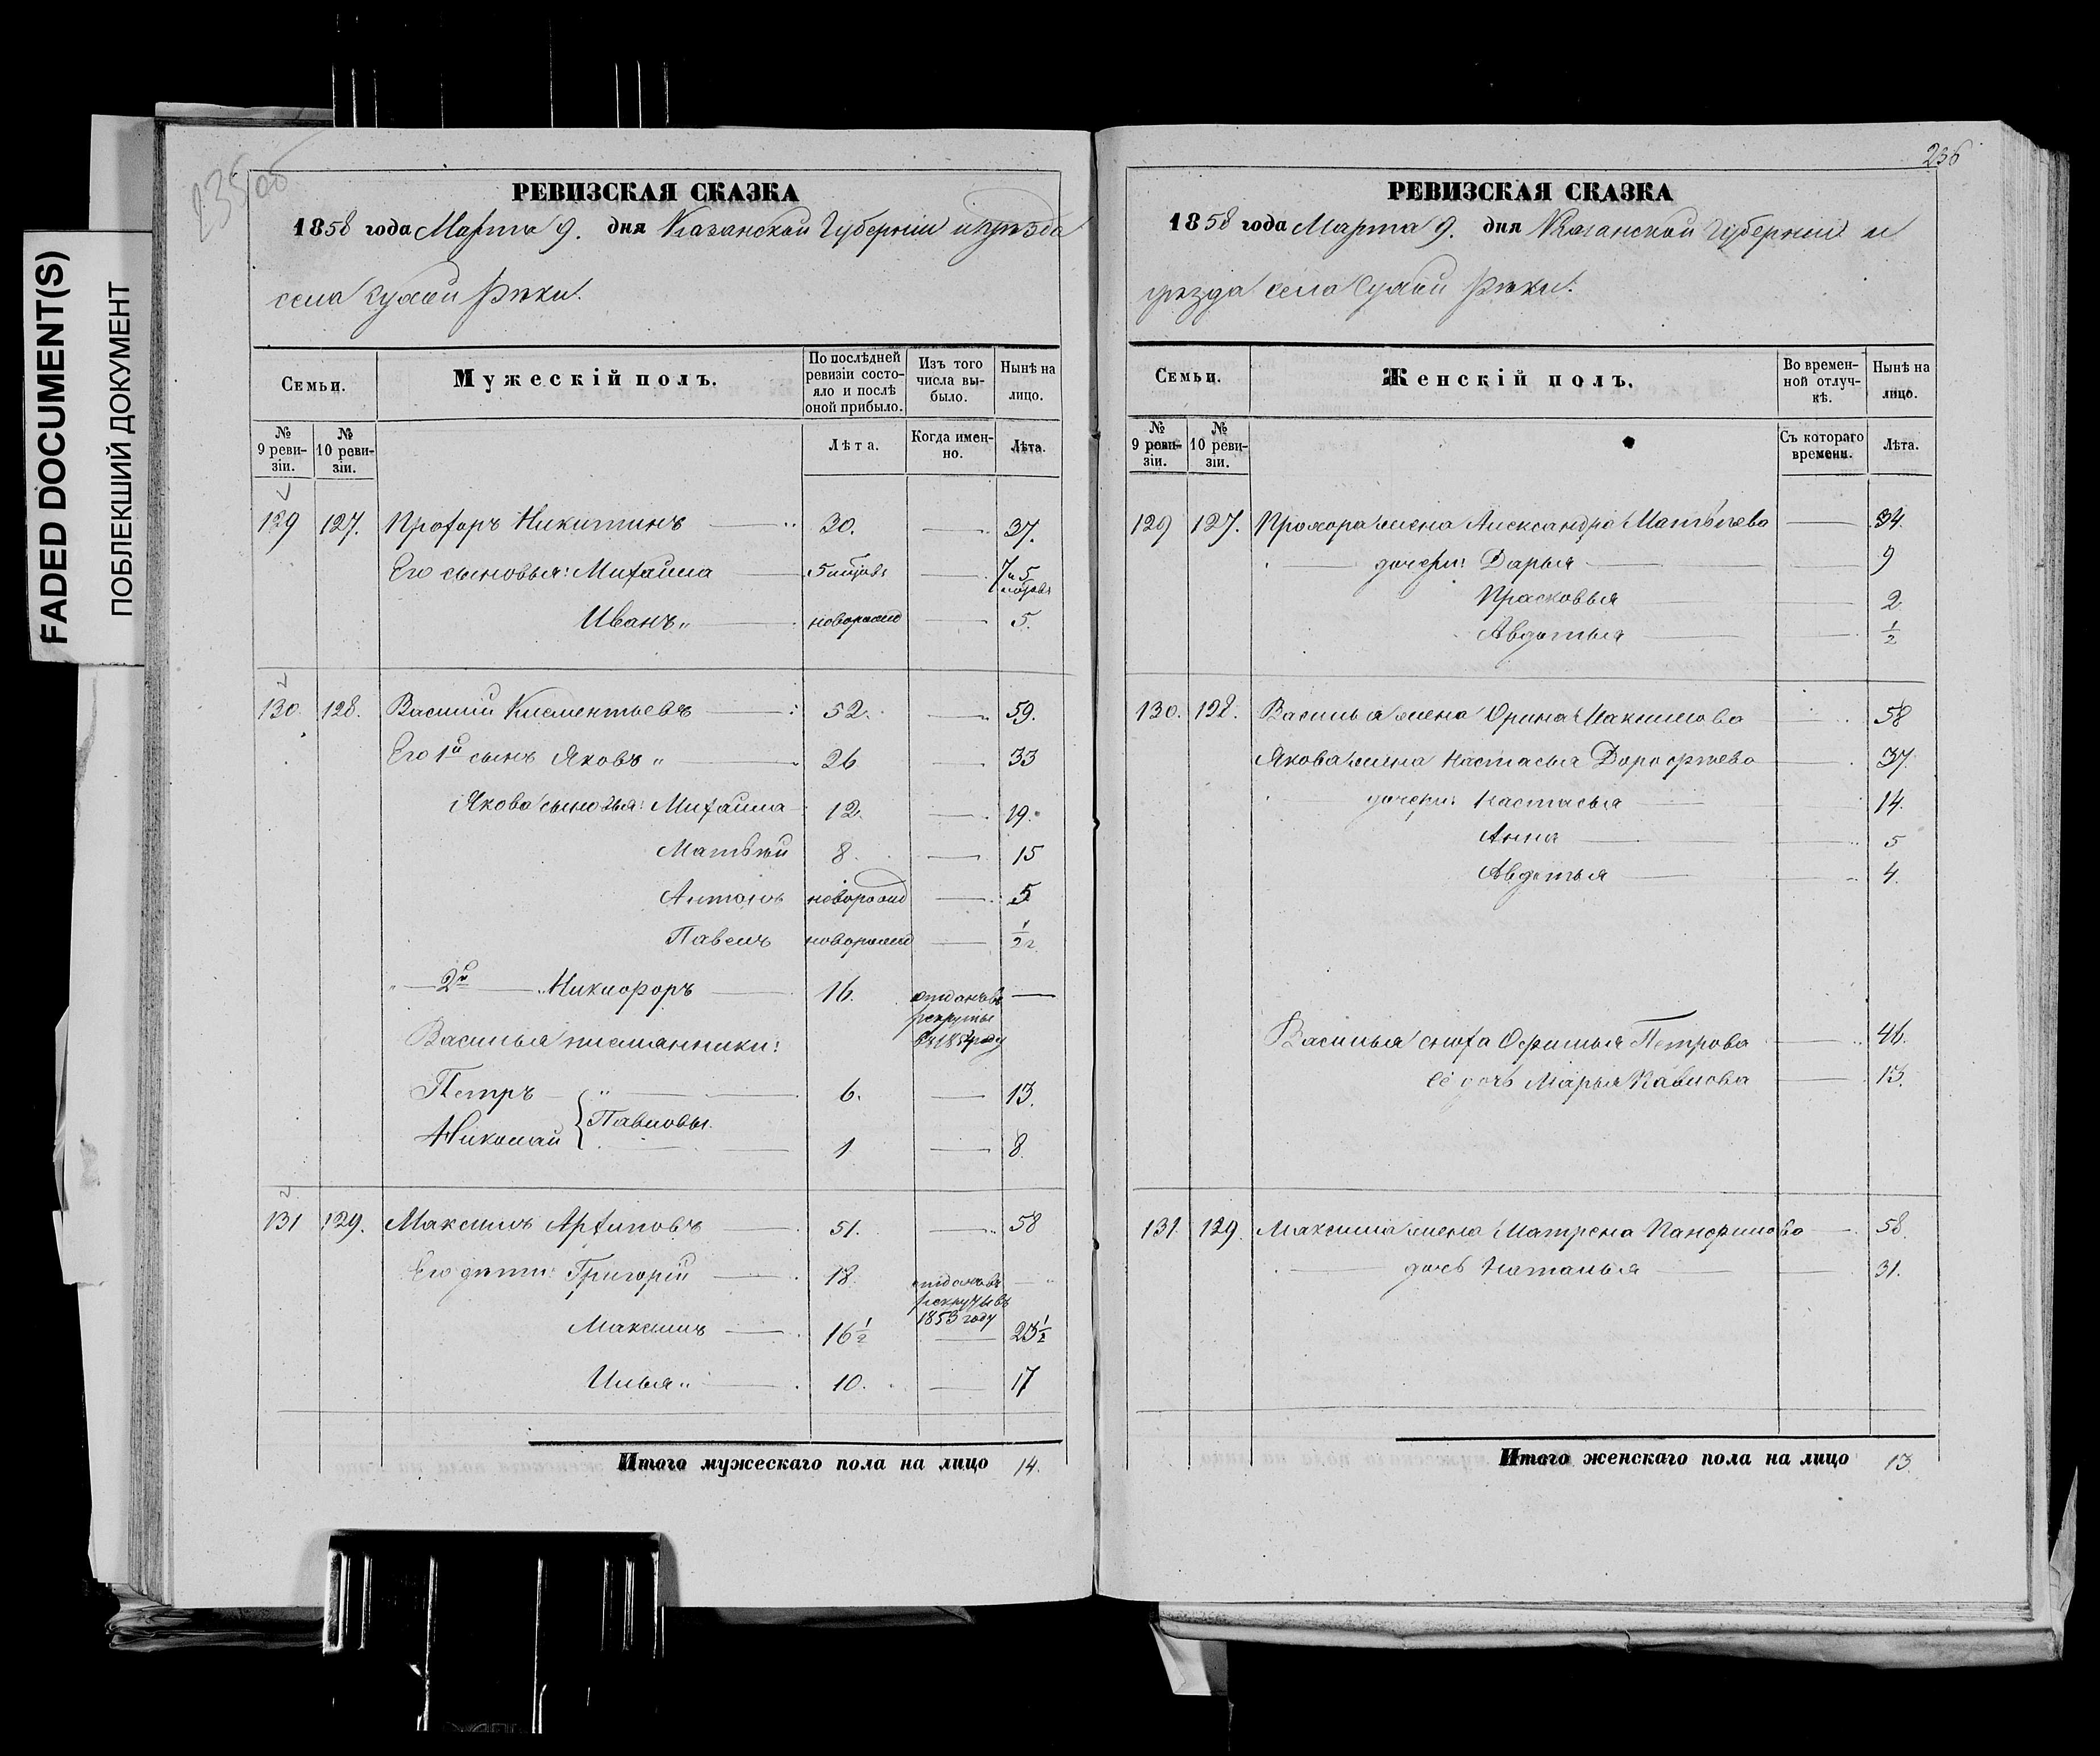 FADED DOCUMENT(S)
ПОБЛЕКШИЙ ДОКУМЕНТ
РЕВИЗСКАЯ СКАЗКА
1858 года Марта 9. дня Казанской Губерніи и уѣзда
села Сухой Рѣки.
Семьи.
Мужескій полъ.
По послѣдней ревизіи состо-
яло и послѣ оной прибыло.
Изъ того числа вы-
было.
Нынѣ на лицо.
№ 9 реви-
зіи.
№ 10 реви-
зіи.
Лѣта.
Когда имен-
но.
Лѣта.
129 127. Прохоръ Никитинъ 30. 37.
Его сыновья: Михайла 5 мѣсяцъ 7 и 5
Иванъ „ новорожд 5.
130. 128. Василій Климентьевъ 52. 59.
Его 1й сынъ Яковъ „ 26 33
Якова сыновья: Михайла 12. 19.
Матвѣй 8. 15
Антонъ новорожд 5
Павелъ новорожд 1/2 г
„ 2й Никифоръ 16. отданъ въ
рекруты
въ 1854 году
Василья племянники:
Петръ „ 6. 13.
Павловы.
Николай 1 8.
131 129. Максимъ Архиповъ 51. 58
Его дѣти: Григорій 18. отданъ въ
рекруты въ
1853 году
Максимъ 16 1/2 23 1/2
Илья „ 10. 17
Итого мужескаго пола на лицо 14.
236
РЕВИЗСКАЯ СКАЗКА
1858 года Марта 9. дня Казанской Губерніи и
уѣзда села Сухой Рѣки.
Семьи.
Женскій полъ.
Во времен-
ной отлуч-
кѣ.
Нынѣ на лицо.
№ 9 реви-
зіи.
№ 10 реви-
зіи.
Съ котораго времени.
Лѣта.
129 127. Прохора жена Александра Матвѣева 34.
дочери: Дарья 9
Прасковья 2
Авдотья 1/2
130. 128. Василья жена Орина Максимова 58
Якова жена Настасья Дорофѣева 37.
дочери: Настасья 14.
Анна 5
Авдотья 4.
Василья сноха Офимья Петрова 46.
Её дочь Марья Павлова 13.
131. 129. Максима жена Матрена Панфилова 58.
дочь Наталья 31.
Итого женскаго пола на лицо 13.